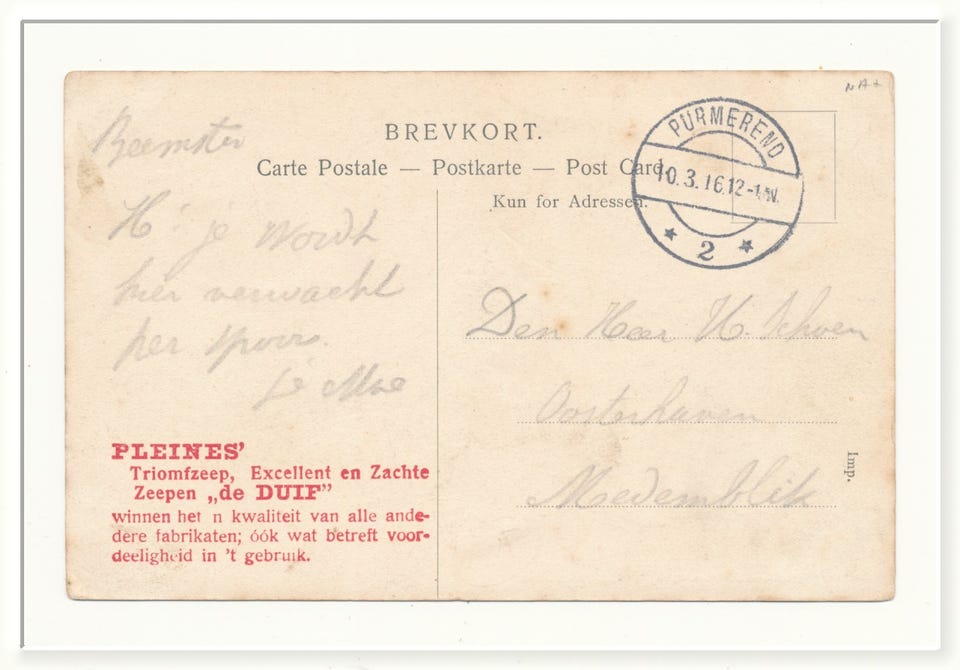 BREVKORT.
Carte Postale — Postkarte — Post Card.
Kun for Adressen.
PURMEREND
10.3.16.12-1.N.
2
Beemster
H: je wordt
hier verwacht
per spoor.
Je Moe
PLEINES'
Triomfzeep, Excellent en Zachte
Zeepen „de DUIF"
winnen het n kwaliteit van alle ande-
dere fabrikaten; óók wat betreft voor-
deeligheid in 't gebruik.
Den Heer H. Schoen
Oosterhaven
Medemblik
Imp.